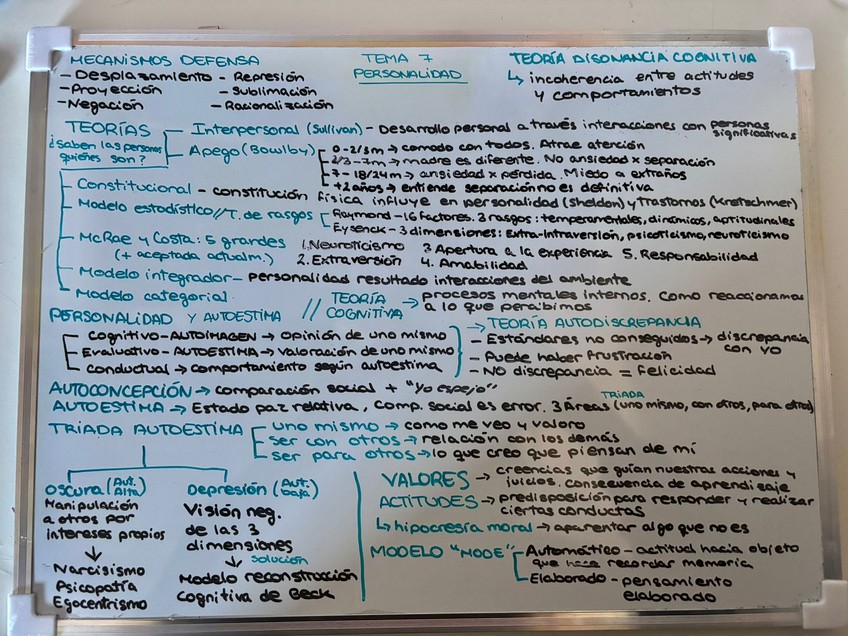 MECANISMOS DEFENSA
- Desplazamiento - Represión
- Proyección - Sublimación
- Negación - Racionalización
TEMA 7
PERSONALIDAD
TEORÍA DISONANCIA COGNITIVA
↳ incoherencia entre actitudes
y comportamientos
TEORÍAS
¿Saben las personas
quiénes son?
Interpersonal (Sullivan) - Desarrollo personal a través interacciones con personas
significativas
Apego (Bowlby)
0-2/3m → comodo con todos. Atrae atención
2/3-7m → madre es diferente. No ansiedad x separación
7-18/24m → ansiedad x pérdida. Miedo a extraños
+2 años → entiende separación no es definitiva
Constitucional - constitución física influye en personalidad (Sheldon) y Trastornos (Kretschmer)
Modelo estadístico // T. de rasgos
Raymond - 16 factores. 3 rasgos: temperamentales, dinámicos, aptitudinales
Eysenck - 3 dimensiones: Extra-Intraversión, psicoticismo, neuroticismo
McRae y Costa: 5 grandes
(+ aceptada actualm.)
1. Neuroticismo 3 Apertura a la experiencia 5. Responsabilidad
2. Extraversión 4. Amabilidad
Modelo integrador - personalidad resultado interacciones del ambiente
Modelo categorial
// TEORÍA
COGNITIVA
→ procesos mentales internos. Como reaccionamos
a lo que percibimos
PERSONALIDAD Y AUTOESTIMA
Cognitivo - AUTOIMAGEN → opinión de uno mismo
Evaluativo - AUTOESTIMA → valoración de uno mismo
Conductual → comportamiento según autoestima
→ TEORÍA AUTODISCREPANCIA
- Estándares no conseguidos → discrepancia
con yo
- Puede haber frustración
- NO discrepancia = felicidad
AUTOCONCEPCIÓN → comparación social + "yo espejo"
AUTOESTIMA → Estado paz relativa, Comp. social es error. 3 Áreas (uno mismo, con otros, para otros)
TRIADA
TRIADA AUTOESTIMA
uno mismo → como me veo y valoro
ser con otros → relación con los demás
ser para otros → lo que creo que piensan de mí
OSCURA (Aut. Alta)
Manipulación
a otros por
intereses propios
↓
Narcisismo
Psicopatía
Egocentrismo
Depresión (Aut. baja)
Visión neg.
de las 3
dimensiones
↓ solución
Modelo reconstrucción
Cognitiva de Beck
VALORES → creencias que guían nuestras acciones y
juicios. Consecuencia de aprendizaje
ACTITUDES → predisposición para responder y realizar
ciertas conductas
↳ hipocresía moral → aparentar algo que no es
MODELO "MODE"
Automático - actitud hacia objeto
que hace recordar memoria
Elaborado - pensamiento
elaborado